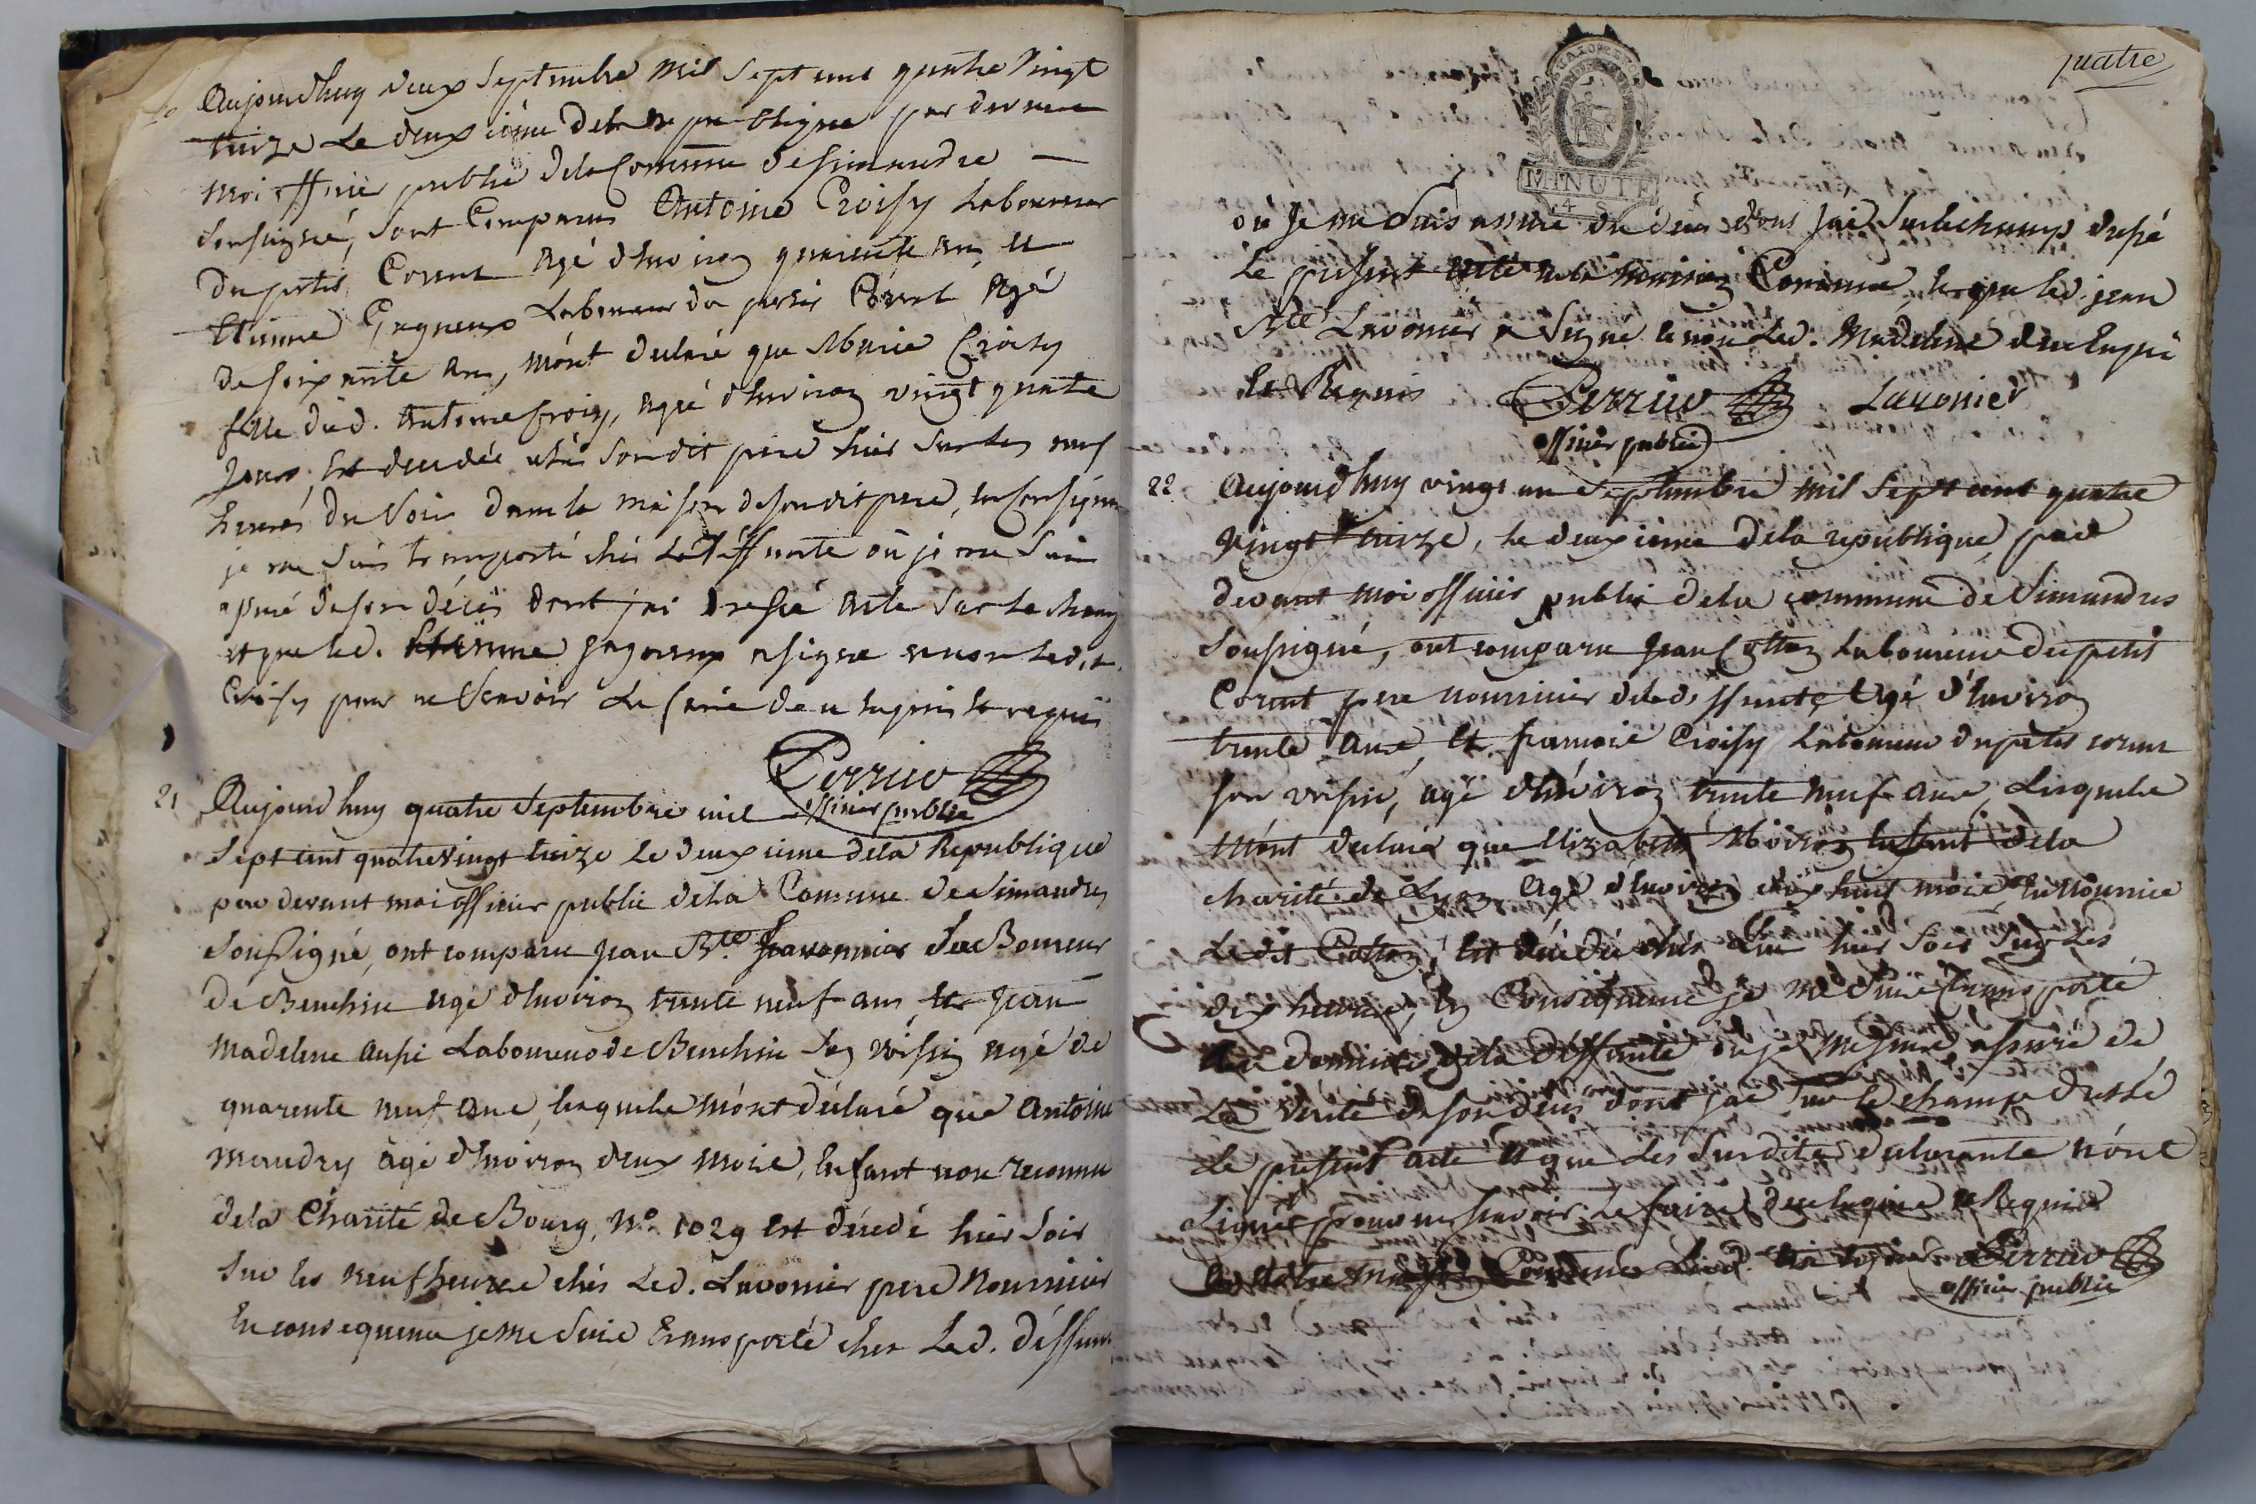 Aujourdhuy deux Septembre mil Sept cent quatre vingt
treize Le deuxième de la Republique par devant
moi officier public dela Commune desimandre
Soussigné, Sont Comparus Antoine Croisy Laboureur
du petit Corent agé d'huviron quarente ans, et
Etienne Gagneux Laboureur du petit Corent Agé
de soixante ans, m'ont declaré que Marie Croisy
fille dud. Antoine Croisy, agée d'huviron vingt quatre
Jours, Est decedée chés Sondit pere hier Sur les neuf
heures du Soir dans la maison desondit pere, En Consequence
je me Suis transporté chés La deffunte où je me Suis
assuré deson décès dont j'ai dressé acte Sur le champ
et que led. Etienne gagneux a signé et non led.
Croisy pour ne Scavoir Le faire de ce Enquis et requis
Perrier
officier public
21 Aujourdhuy quatre Septembre mil
Sept cent quatre vingt treize Le deuxieme dela Republique
par devant moi officier public dela Comune de Simandres
Soussigné, ont comparu Jean Bte Lavonnier LaBoureur
de Beuchin agé d'huviron trente neuf ans, Et Jean
Madeleine aussi Laboureur de Beuchin Son voisin agé de
quarente neuf ans, lesquels m'ont déclaré que Antoine
Maudry agé d'huviron deux mois, Enfant non reconnu
dela Charité de Bourg, No. 1029 Est décedé hier Soir
Sur les neuf heures chés Led. Lavonier pere Nourricier
En consequence je me Suis transporté chés Led. déffunt
quatre
MINUTE
où Je me Suis assuré du décès dont J'ai Surlechamp dressé
Le présent acte Commune, Et que led. jean
Bte Lavonier a Signé et non Led. Madeleine de ce Enquis
et Requis Perrier Lavonier
officier public
22 Aujourdhuy vingt un Septembre mil Sept cent quatre
vingt treize, le deuxieme dela republique, par
devant moi officier public dela commune de Simandres
Soussigné, ont comparu Jean Cottin Laboureur du petit
Corent pere nourricier delad. deffunte agé d'huviron
trente ans, Et francois Croisy Laboureur du petit corent
son voisin, agé d'huviron trente neuf ans, Lesquels
m'ont declaré que Elizabeth Moiron Enfant dela
charité de Lyon agé d'huviron dix huit mois, En Nourrice
Ledit Cottin, Est décédé chés Lui hier Soir Sur Les
dix heures, En Consequence je me Suis transporté
au domicile dela deffunte où je me Suis assuré de
La Verité deson décès dont j'ai Sur le champ dressé
Le présent acte Et que Les Susdits déclarants n'ont
Signés pour ne Scavoir Le faire de ce Enquis et Requis
Perrier
officier public